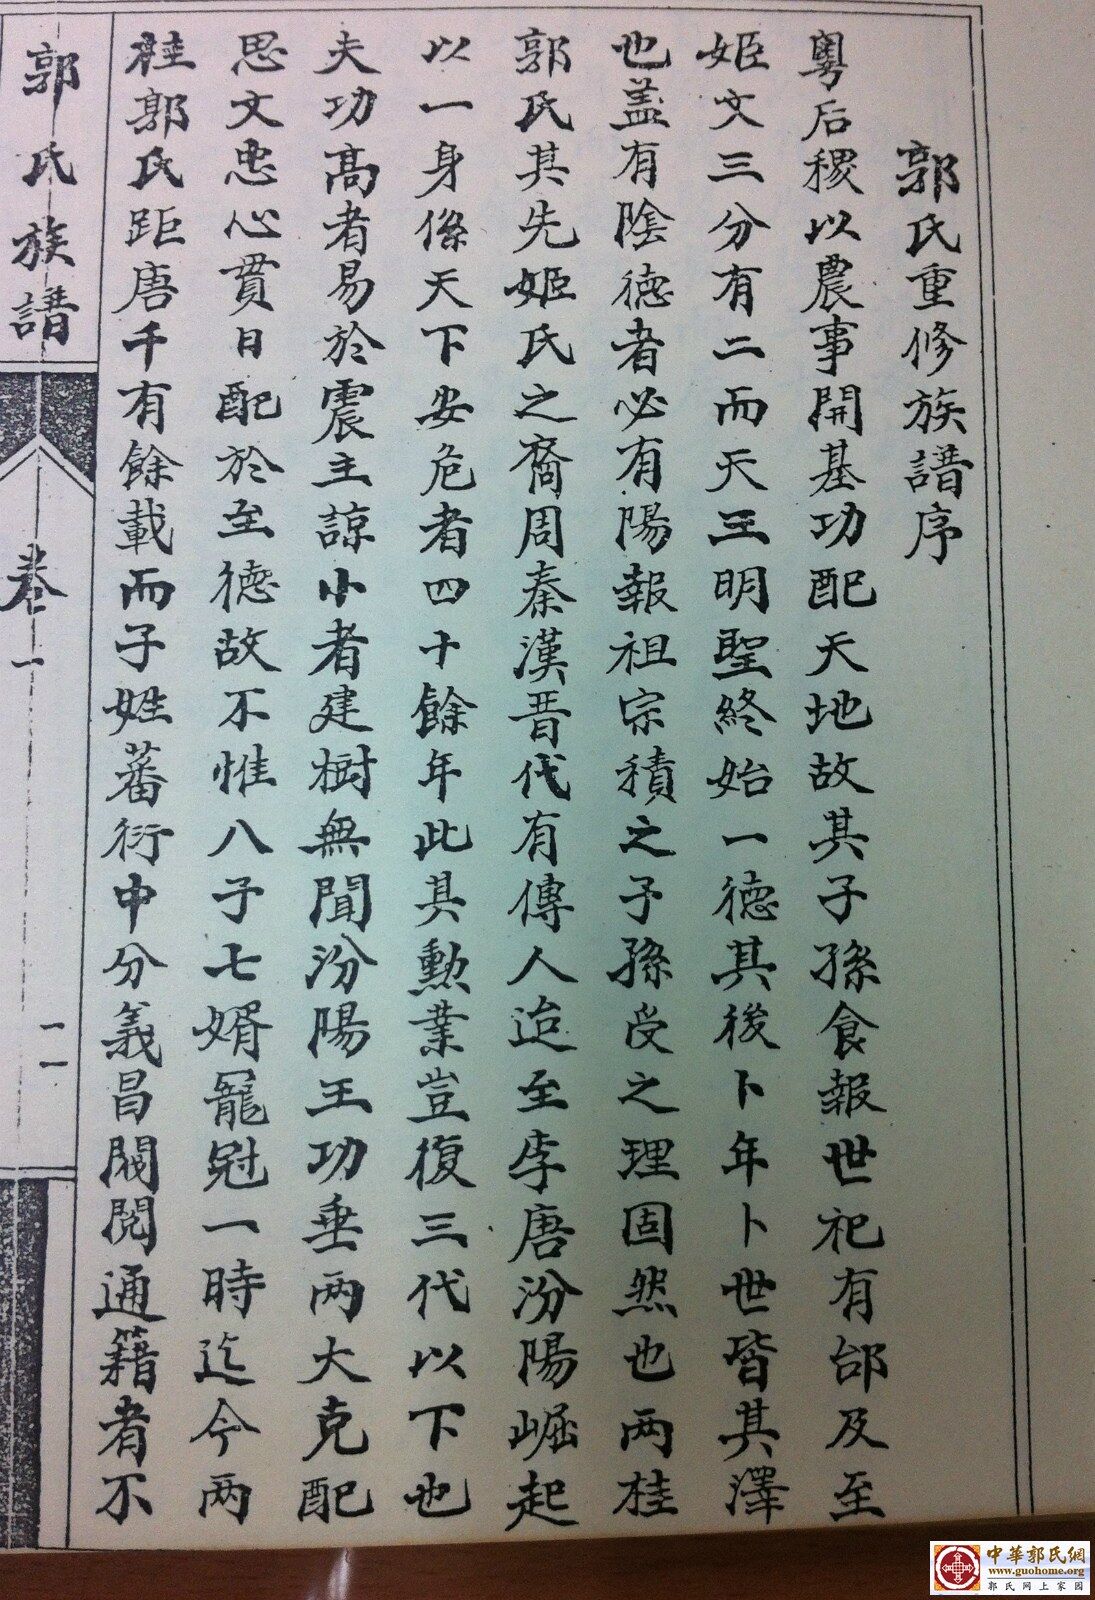 郭氏重修族譜序
粤后稷以農事開基功配天地故其子孫食報世祀有邰及至
姬文三分有二而天王明聖終始一德其後卜年卜世皆其澤
也蓋有陰德者必有陽報祖宗積之子孫受之理固然也两桂
郭氏其先姬氏之裔周秦漢晋代有傳人迨至李唐汾陽崛起
以一身係天下安危者四十餘年此其勲業豈復三代以下也
夫功高者易於震主諒小者建樹無聞汾陽王功垂两大克配
思文忠心貫日配於至德故不惟八子七婿寵冠一時迄今两
桂郭氏距唐千有餘載而子姓蕃衍中分義昌閥閱通籍者不
郭氏族譜
卷一
一一
中華郭氏網
www.guohome.org
郭氏网上家园